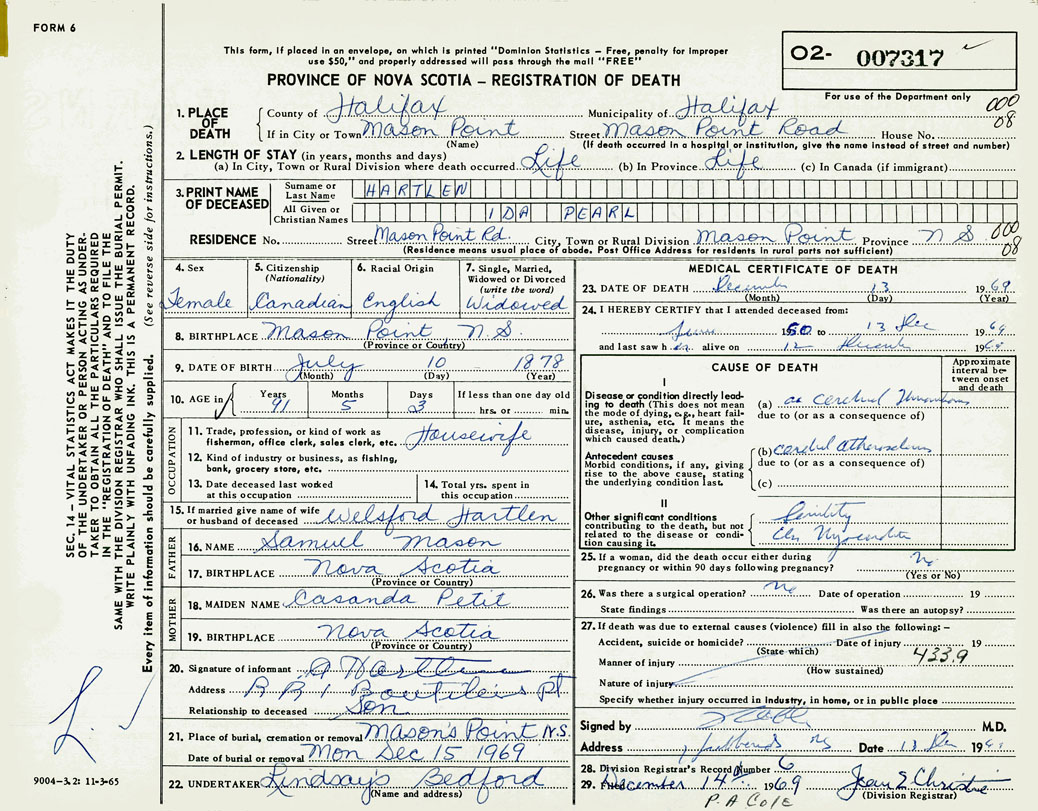 FORM 6
This form, if placed in an envelope, on which is printed "Dominion Statistics – Free, penalty for improper
use $50," and properly addressed will pass through the mail "FREE"
PROVINCE OF NOVA SCOTIA – REGISTRATION OF DEATH
O2- 007317
For use of the Department only
000
08
1. PLACE OF DEATH County of Halifax Municipality of Halifax
If in City or Town Mason Point Street Mason Point Road House No.
(Name) (If death occurred in a hospital or institution, give the name instead of street and number)
2. LENGTH OF STAY (in years, months and days)
(a) In City, Town or Rural Division where death occurred Life (b) In Province Life (c) In Canada (if immigrant)
3. PRINT NAME OF DECEASED Surname or Last Name HARTLEN
All Given or Christian Names IDA PEARL
RESIDENCE No. Street Mason Point Rd. City, Town or Rural Division Mason Point Province N S 000
08
(Residence means usual place of abode. Post Office Address for residents in rural parts not sufficient)
4. Sex Female
5. Citizenship (Nationality) Canadian
6. Racial Origin English
7. Single, Married, Widowed or Divorced (write the word) Widowed
8. BIRTHPLACE Mason Point N.S.
(Province or Country)
9. DATE OF BIRTH July 10 1878
(Month) (Day) (Year)
10. AGE in Years 91 Months 5 Days 3 If less than one day old hrs. or min.
OCCUPATION
11. Trade, profession, or kind of work as fisherman, office clerk, sales clerk, etc. Housewife
12. Kind of industry or business, as fishing, bank, grocery store, etc.
13. Date deceased last worked at this occupation
14. Total yrs. spent in this occupation
15. If married give name of wife or husband of deceased Welsford Hartlen
FATHER
16. NAME Samuel Mason
17. BIRTHPLACE Nova Scotia
(Province or Country)
MOTHER
18. MAIDEN NAME Casanda Petit
19. BIRTHPLACE Nova Scotia
(Province or Country)
20. Signature of informant A Hartlen
Address R R 1 Boutiliers Pt
Relationship to deceased Son
21. Place of burial, cremation or removal Mason's Point N.S.
Date of burial or removal Mon Dec 15 1969
22. UNDERTAKER Lindsay's Bedford
(Name and address)
MEDICAL CERTIFICATE OF DEATH
23. DATE OF DEATH December 13 1969
(Month) (Day) (Year)
24. I HEREBY CERTIFY that I attended deceased from:
1960 to 13 Dec 1969
and last saw her alive on 12 December 1969
CAUSE OF DEATH
Approximate interval between onset and death
I
Disease or condition directly leading to death (This does not mean the mode of dying, e.g., heart failure, asthenia, etc. It means the disease, injury, or complication which caused death.)
(a) cerebral Thrombosis
due to (or as a consequence of)
Antecedent causes
Morbid conditions, if any, giving rise to the above cause, stating the underlying condition last.
(b) cerebral
due to (or as a consequence of)
(c)
II
Other significant conditions contributing to the death, but not related to the disease or condition causing it.
Senility
25. If a woman, did the death occur either during
pregnancy or within 90 days following pregnancy? No
(Yes or No)
26. Was there a surgical operation? No Date of operation 19
State findings Was there an autopsy?
27. If death was due to external causes (violence) fill in also the following: –
Accident, suicide or homicide? Date of injury 19
(State which) 433.9
Manner of injury
(How sustained)
Nature of injury
Specify whether injury occurred in industry, in home, or in public place
Signed by M.D.
Address NS Date 13 Dec 1969
28. Division Registrar's Record Number 6
29. Filed December 14 1969 Jean E Christie
(Division Registrar)
P.A COLE
SEC. 14 – VITAL STATISTICS ACT MAKES IT THE DUTY
OF THE UNDERTAKER OR PERSON ACTING AS UNDER-
TAKER TO OBTAIN ALL THE PARTICULARS REQUIRED
IN THE "REGISTRATION OF DEATH" AND TO FILE THE
SAME WITH THE DIVISION REGISTRAR WHO SHALL ISSUE THE BURIAL PERMIT.
WRITE PLAINLY WITH UNFADING INK. THIS IS A PERMANENT RECORD.
Every item of information should be carefully supplied. (See reverse side for instructions.)
L.
9004-3.2: 11-3-65